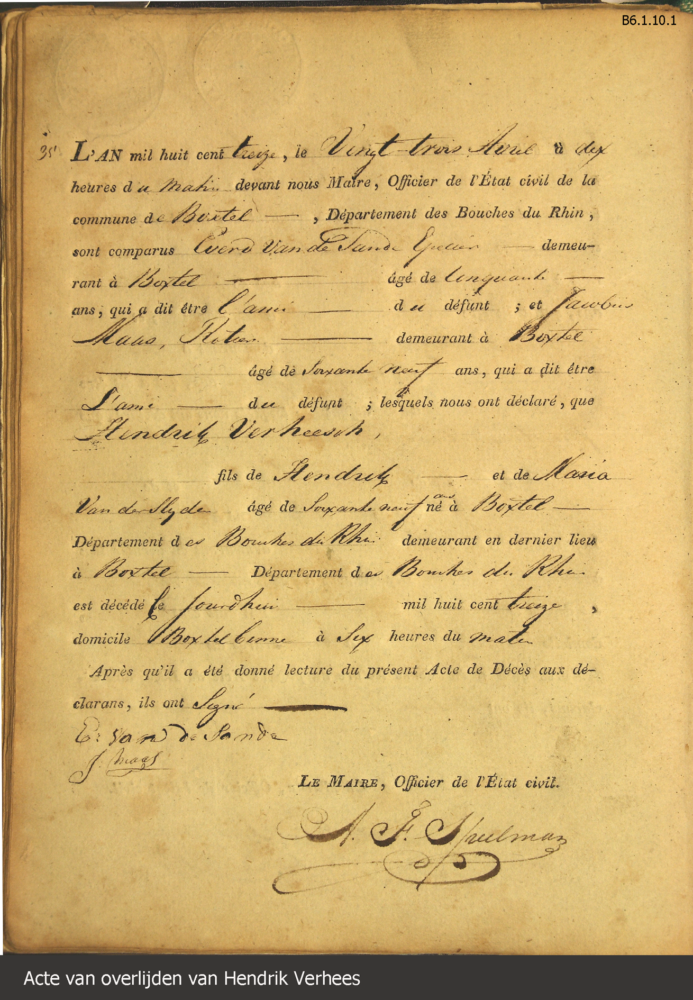 B6.1.10.1
35 L'AN mil huit cent treize, le Vingt-trois Avril à dix
heures du matin devant nous Maire, Officier de l'État civil de la
commune de Boxtel — , Département des Bouches du Rhin,
sont comparus Everd Van de Sande — demeu-
rant à Boxtel — âgé de Cinquante —
ans, qui a dit être l'ami — du défunt ; et Jacobus
Maas, — demeurant à Boxtel
— âgé de Soixante neuf ans, qui a dit être
L'ami — du défunt ; lesquels nous ont déclaré, que
Hendrik Verheesch,
fils de Hendrik — et de Maria
Van der Slyde âgé de Soixante neuf ans né à Boxtel —
Département des Bouches du Rhin demeurant en dernier lieu
à Boxtel — Département des Bouches du Rhin
est décédé le jourdhui — mil huit cent treize,
domicile Boxtel à Six heures du matin
Après qu'il a été donné lecture du présent Acte de Décès aux dé-
clarans, ils ont Signé —
E: van de Sande
J. Maas
LE MAIRE, Officier de l'État civil.
A. F. Spelman
Acte van overlijden van Hendrik Verhees